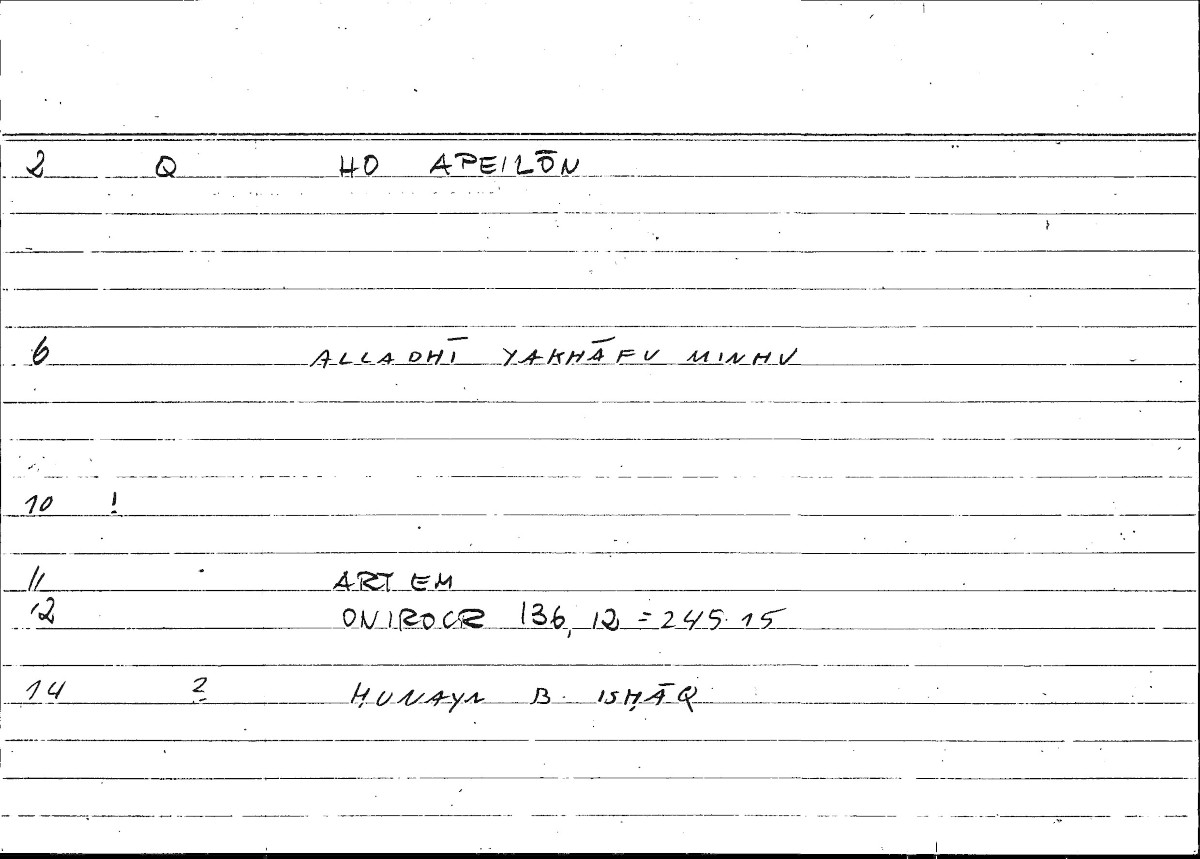 2 Q HO APEILŌN
6 ALLADHĪ YAKHĀFU MINHU
10 !
11 ART EM
12 ONIROCR 136, 12 = 245.15
14 2 ḤUNAYN B. ISḤĀQ